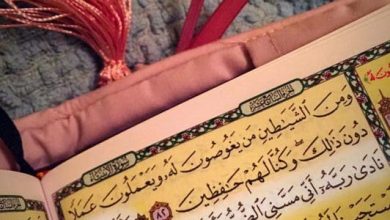 وَمِنَ ٱلشَّيَٰطِينِ مَن يَغُوصُونَ لَهُۥ وَيَعْمَلُونَ عَمَلًا
دُونَ ذَٰلِكَ ۖ وَكُنَّا لَهُمْ حَٰفِظِينَ ٨٢
نَادَىٰ رَبَّهُۥٓ أَنِّى مَسَّنِىَ ٱلضُّرُّ